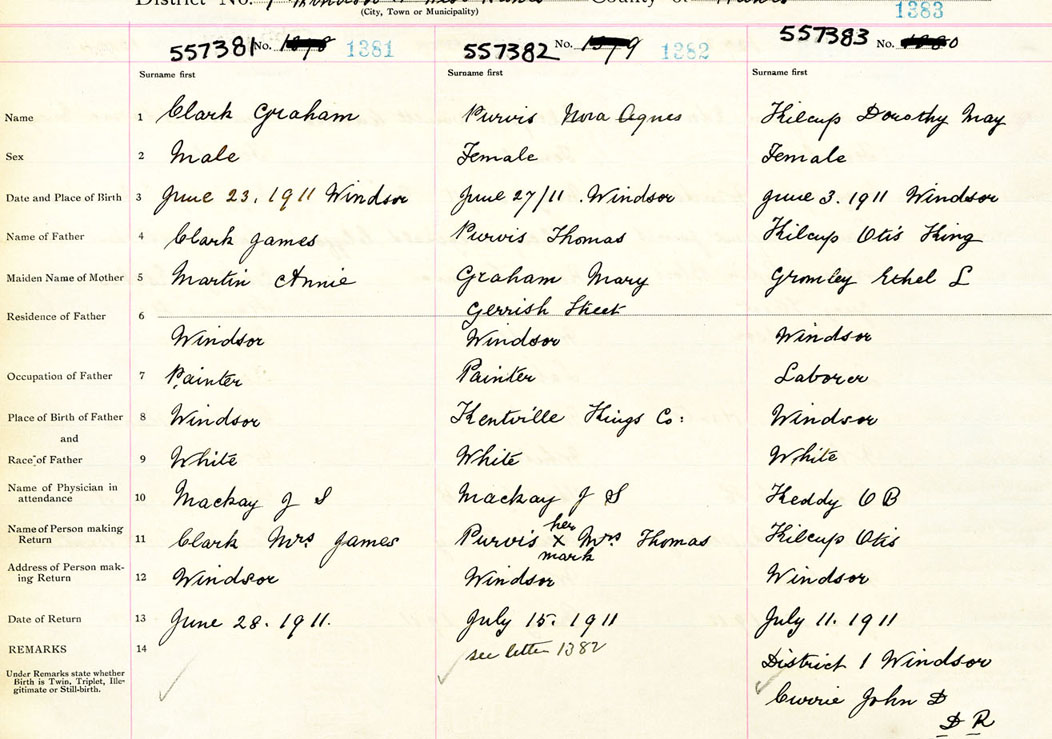 District No. 1 Windsor County of Hants
(City, Town or Municipality)
1383
557381 No. 1381 557382 No. 1382 557383 No.
Surname first Surname first Surname first
Name 1 Clark Graham Purvis Nora Agnes Kilcup Dorothy May
Sex 2 Male Female Female
Date and Place of Birth 3 June 23. 1911 Windsor June 27/11. Windsor June 3. 1911 Windsor
Name of Father 4 Clark James Purvis Thomas Kilcup Otis King
Maiden Name of Mother 5 Martin Annie Graham Mary Gromley Ethel L
Residence of Father 6 Gerrish Street
Windsor Windsor Windsor
Occupation of Father 7 Painter Painter Laborer
Place of Birth of Father 8 Windsor Kentville Kings Co: Windsor
and
Race of Father 9 White White White
Name of Physician in
attendance 10 Mackay J S Mackay J S Keddy O B
Name of Person making
Return 11 Clark Mrs James Purvis her x mark Mrs Thomas Kilcup Otis
Address of Person mak-
ing Return 12 Windsor Windsor Windsor
Date of Return 13 June 28. 1911. July 15. 1911 July 11. 1911
REMARKS 14 see letter 1382 District 1 Windsor
Under Remarks state whether
Birth is Twin, Triplet, Ille-
gitimate or Still-birth.
Currie John D
D R